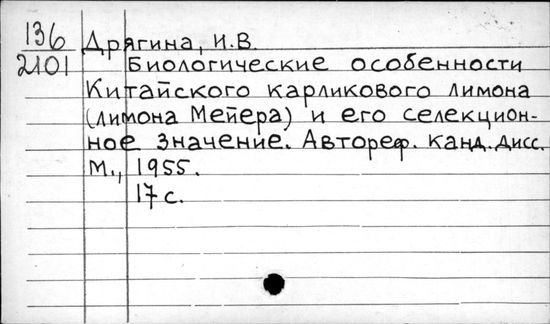 136
2101
Дрягина, И.В.
Биологические особенности
Китайского карликового лимона
(лимона Мейера) и его селекцион-
ное значение. Автореф. канд. дисс.
М., 1955.
17 с.